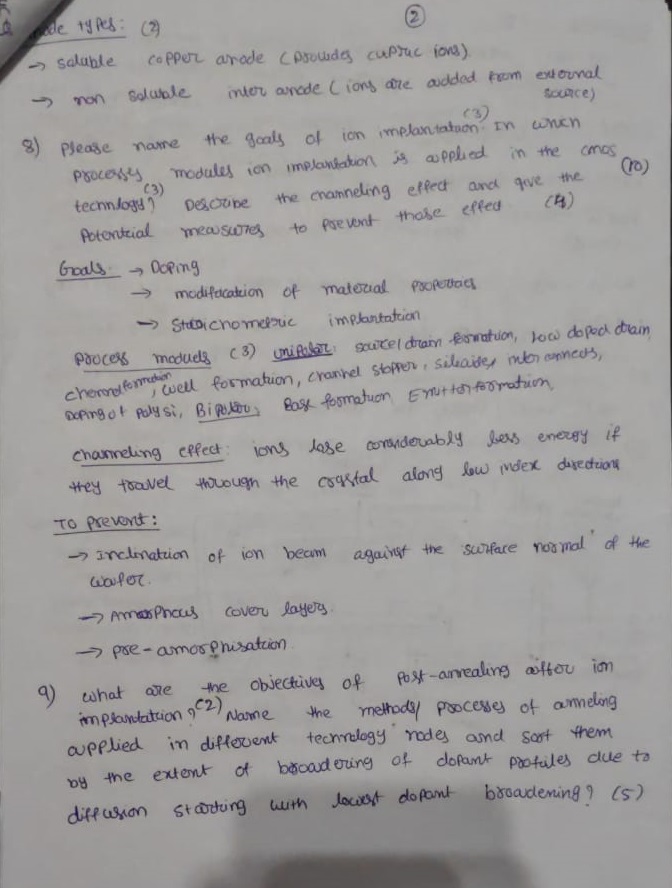 ②
ode types: (2)
→ saluble copper anode (provides cupric ions)
→ non saluble inter anode (ions are added from external
source)
8) Please name the goals of ion implantation. (3) In which
processes modules ion implantation is applied in the cmos
technlogy? (3) Describe the channeling effect and give the (10)
Potential measures to prevent those effect (4)
Goals: → Doping
→ modification of material properties
→ Stoichometric implantation
process moduels (3) unipolar: source/drain formation, low doped drain,
channel formation, well formation, channel stopper, silicides, inter connects,
Doping of Poly si, Bipolar: Base formation, Emitter formation,
channeling effect: ions lose considerably less energy if
they travel through the crystal along low index directions
TO Prevent:
→ Inclination of ion beam against the surface normal of the
wafer.
→ Amorphous cover layers.
→ pre-amorphisation
9) what are the objectives of Post-annealing after ion
implantation? (2) Name the methods/ processes of anneling
applied in different technology nodes and sort them
by the extent of broadering of dopant profiles due to
diffusion starting with lowest dopant broadening? (5)